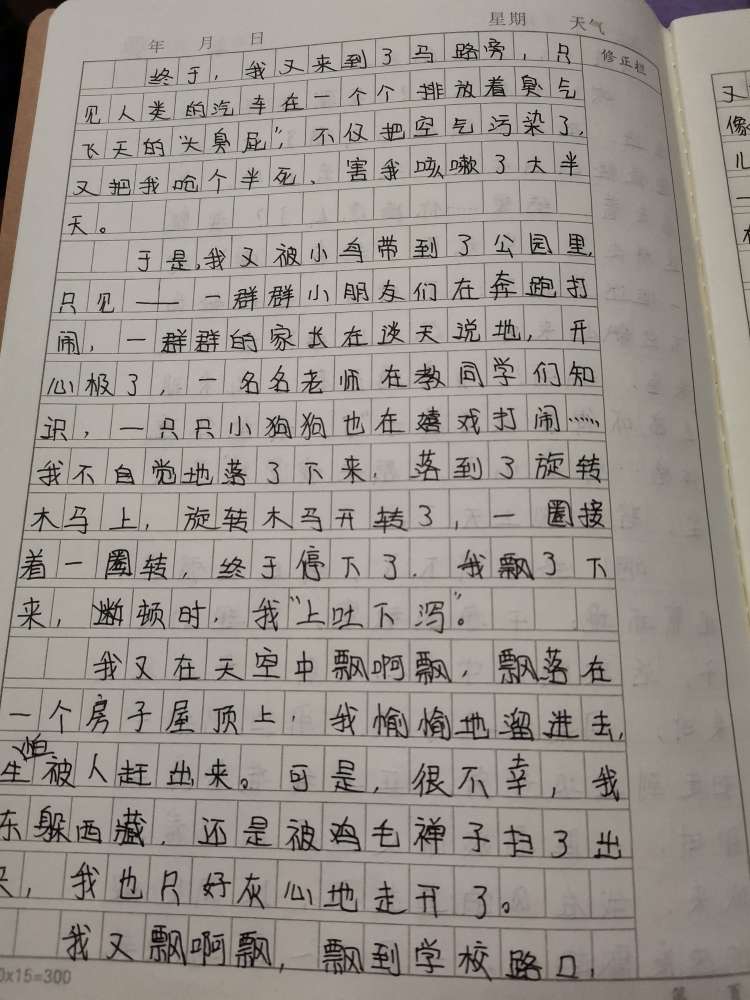 年 月 日 星期 天气
修正栏
终于，我又来到了马路旁，只
见人类的汽车在一个个排放着臭气
飞天的"大臭屁"，不仅把空气污染了，
又把我呛个半死、害我咳嗽了大半
天。
于是，我又被小鸟带到了公园里，
只见——一群群小朋友们在奔跑打
闹，一群群的家长在谈天说地，开
心极了，一名名老师在教同学们知
识，一只只小狗狗也在嬉戏打闹……
我不自觉地落了下来，落到了旋转
木马上，旋转木马开转了，一圈接
着一圈转，终于停下了，我飘了下
来，顿时，我"上吐下泻"。
我又在天空中飘啊飘，飘落在
一个房子屋顶上，我愉愉地溜进去，
生怕被人赶出来。可是，很不幸，我
东躲西藏，还是被鸡毛禅子扫了出
来，我也只好灰心地走开了。
我又飘啊飘，飘到学校路口，
0x15=300